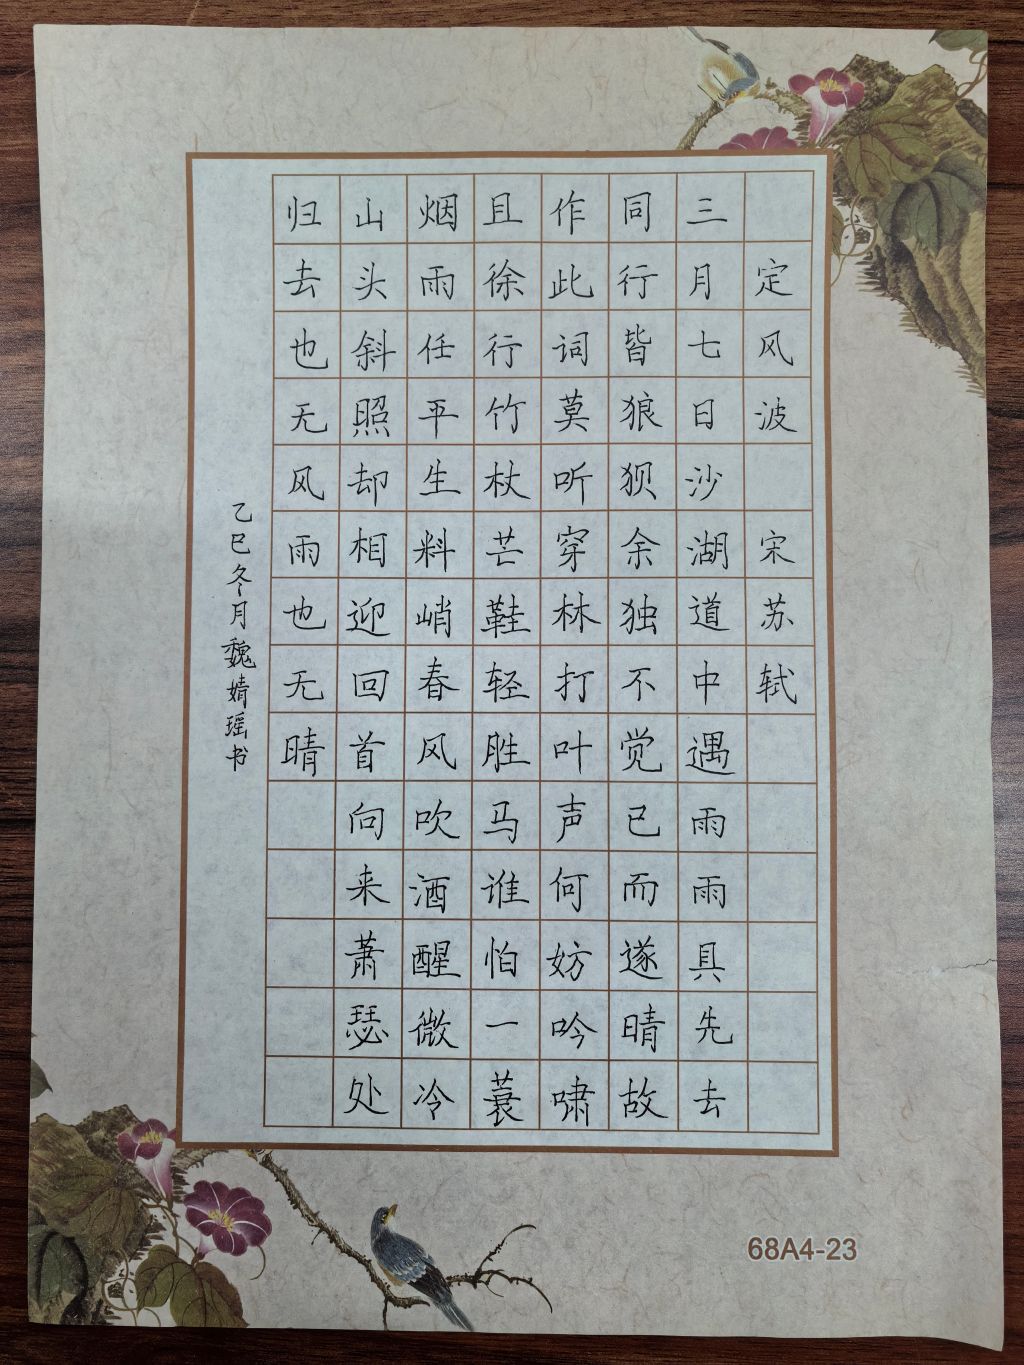 定风波 宋苏轼
三月七日沙湖道中遇雨雨具先去
同行皆狼狈余独不觉已而遂晴故
作此词莫听穿林打叶声何妨吟啸
且徐行竹杖芒鞋轻胜马谁怕一蓑
烟雨任平生料峭春风吹酒醒微冷
山头斜照却相迎回首向来萧瑟处
归去也无风雨也无晴
乙巳冬月魏婧瑶书
68A4-23